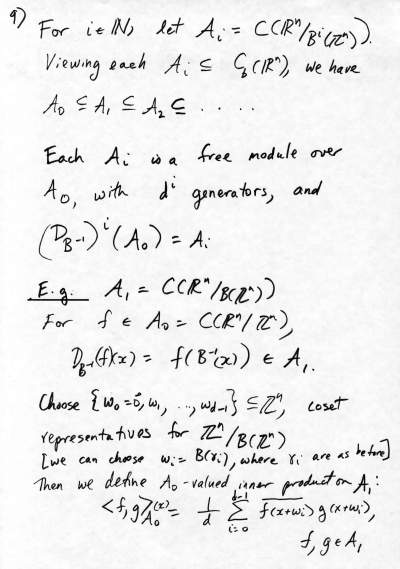 9) For i ∈ ℕ, let A_i = C(ℝⁿ/B^i(ℤⁿ)).
Viewing each A_i ⊆ C_b(ℝⁿ), we have
A_0 ⊆ A_1 ⊆ A_2 ⊆ . . . .
Each A_i is a free module over
A_0, with d^i generators, and
(D_{B^{-1}})^i (A_0) = A_i
E.g. A_1 = C(ℝⁿ/B(ℤⁿ))
For f ∈ A_0 = C(ℝⁿ/ℤⁿ),
D_{B^{-1}}(f)(x) = f(B^{-1}(x)) ∈ A_1.
Choose {w_0 = 0⃗, w_1, ..., w_{d-1}} ⊆ ℤⁿ, coset
representatives for ℤⁿ/B(ℤⁿ)
[we can choose w_i = B(γ_i), where γ_i are as before]
Then we define A_0-valued inner product on A_1:
<f,g>_{A_0}(x) = 1/d Σ_{i=0}^{d-1} \overline{f(x+w_i)} g(x+w_i),
f, g ∈ A_1